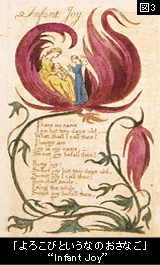 図3
Infant Joy
I have no name
I am but two days old.—
What shall I call thee?
I happy am
Joy is my name,—
Sweet joy befall thee!
Pretty joy!
Sweet joy but two days old,
Sweet joy I call thee;
Thou dost smile.
I sing the while
Sweet joy befall thee.
「よろこびというなのおさなご」
“Infant Joy”